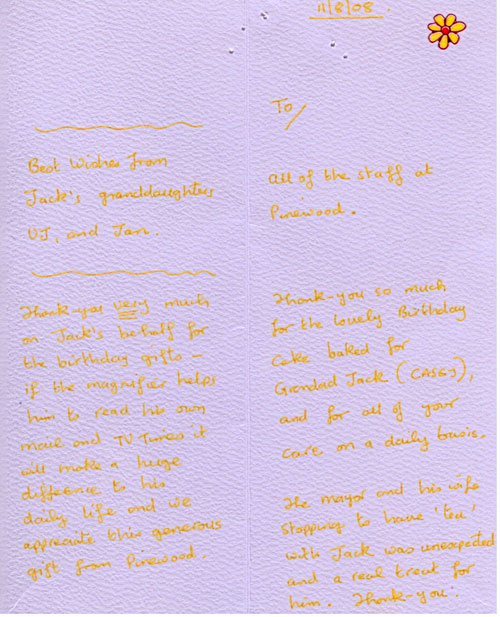 Best Wishes from
Jack's granddaughters
VJ, and Jan.
Thank-you very much
on Jack's behalf for
the birthday gifts –
if the magnifier helps
him to read his own
mail and TV Times it
will make a huge
difference to his
daily life and we
appreciate this generous
gift from Pinewood.
11/8/08.
To/
all of the staff at
Pinewood.
Thank-you so much
for the lovely Birthday
Cake baked for
Grandad Jack (CASEY),
and for all of your
care on a daily basis.
The Mayor and his wife
stopping to have 'tea'
with Jack was unexpected
and a real treat for
him. Thank-you.